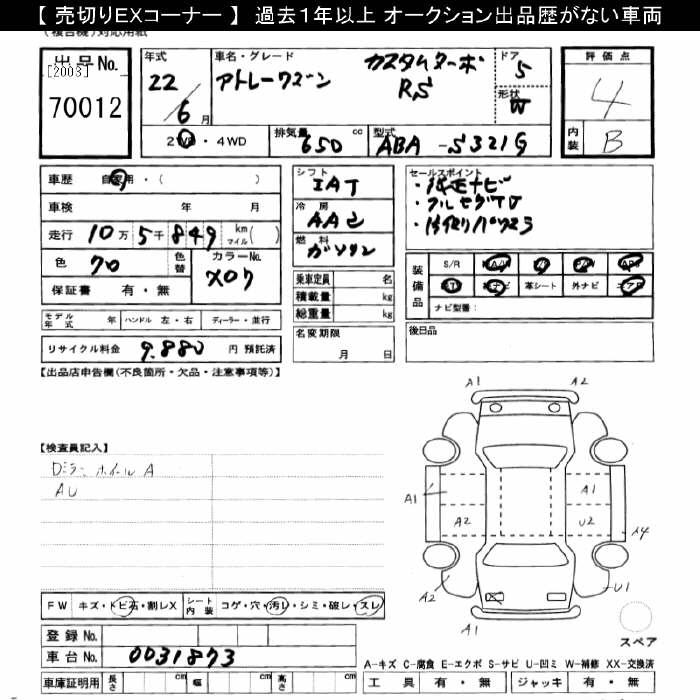 【 売切りEXコーナー 】 過去１年以上 オークション出品歴がない車両
(複合機)対応用紙
出品No.
[2003]
70012
年式
22
6月
車名・グレード
アトレーワゴン
カスタムターボ
RS
ドア
5
形状
W
評価点
4
内装
B
2WD・4WD
排気量
650 cc
型式
ABA-S321G
車歴 自家用・( )
車検 年 月
走行 10万5千849 km マイル( )
色 クロ
色替
カラーNo.
X07
保証書 有・無
シフト
IAT
冷房
AAC
燃料
ガソリン
セールスポイント
・純正ナビ
・フルセグTV
・片側パワスラ
乗車定員 名
積載量 kg
総重量 kg
装備品
S/R
A/W
P/S
P/W
ABS
革シート
外ナビ
エアB
ナビ型番:
モデル年式 年
ハンドル 左・右
ディーラー・並行
名変期限
月 日
後日品
リサイクル料金 9.880 円 預託済
【出品店申告欄(不良箇所・欠品・注意事項等)】
【検査員記入】
Dミラー ホイールA
AU
A1
A2
A1
A1
A2
U2
A4
A2
U1
A1
FW キズ・トビ石・割レX
シート内装 コゲ・穴・汚レ・シミ・破レ・スレ
スペア
登録No.
車台No. 0031873
A-キズ C-腐食 E-エクボ S-サビ U-凹ミ W-補修 XX-交換済
車庫証明用 長さ cm 幅 cm 高さ cm
工具 有・無 ジャッキ 有・無